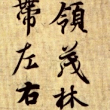 領茂林
帶左右